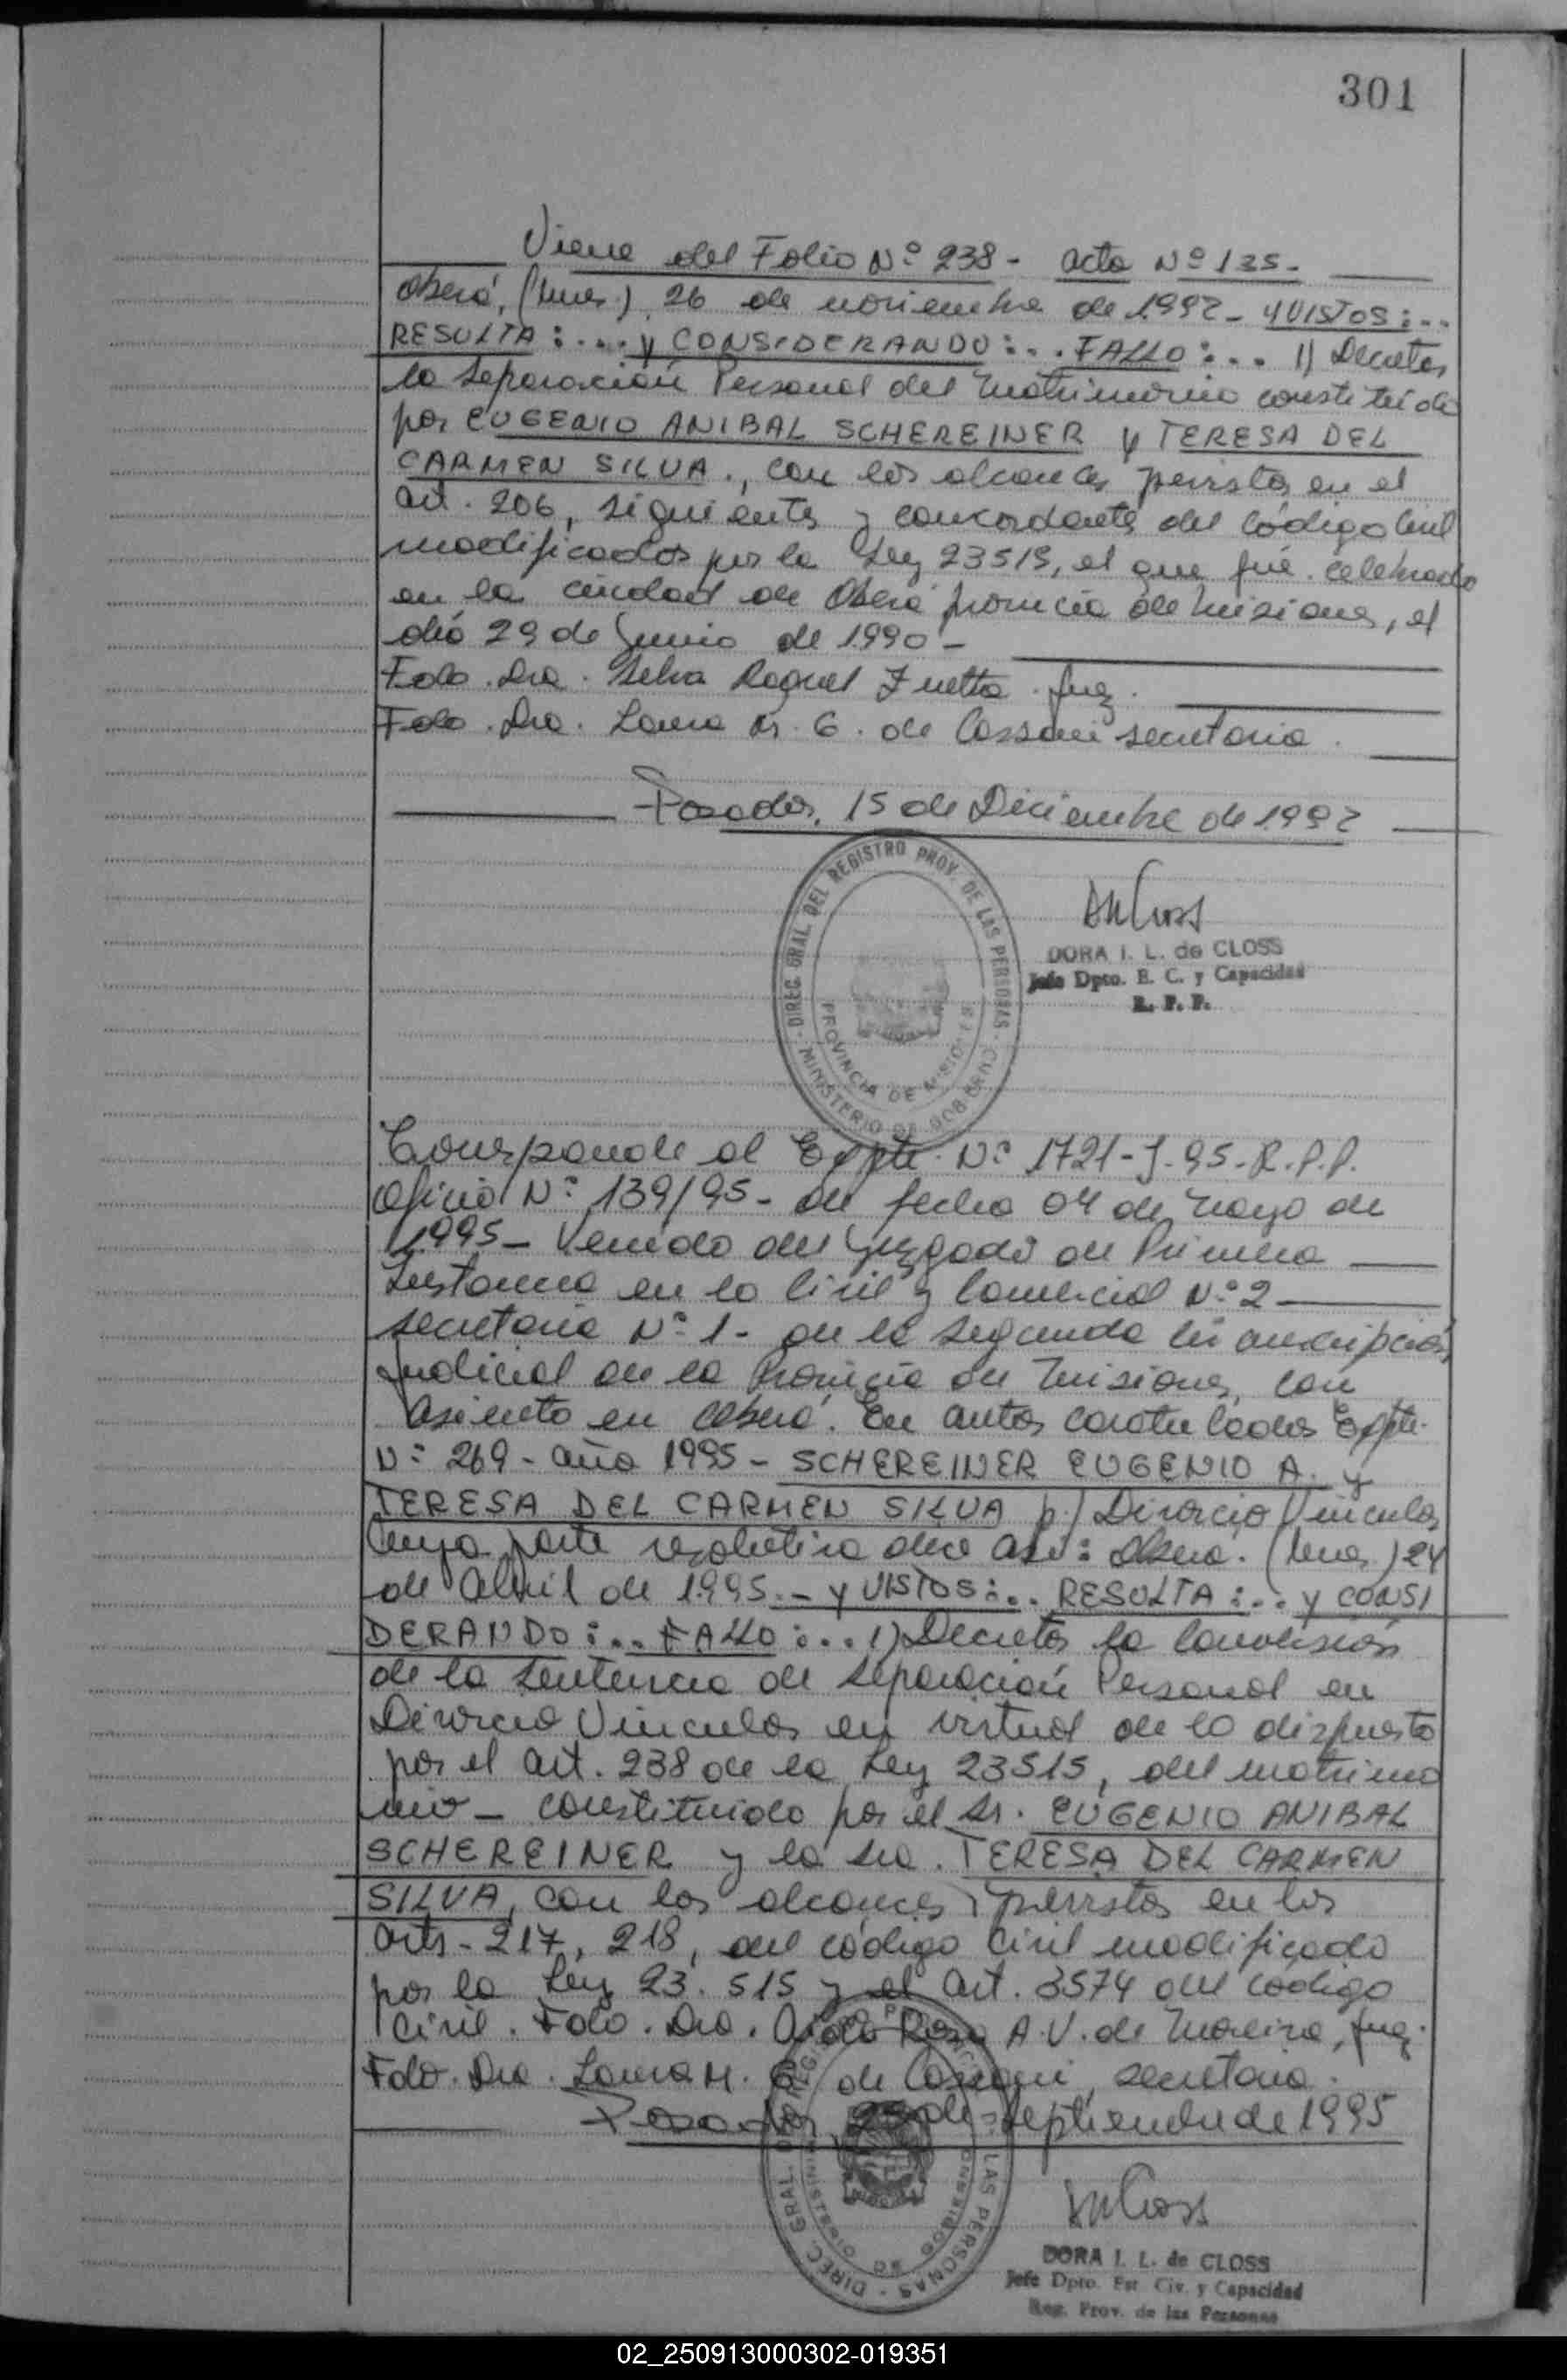 301
Viene del Folio Nº 238 - acta Nº 135 -
Oberá, (Mnes.) 26 de noviembre de 1992 - Y VISTOS:...
RESULTA:... y CONSIDERANDO:... FALLO:... 1) Decretar
la Separación Personal del Matrimonio constituído
por EUGENIO ANIBAL SCHEREINER y TERESA DEL
CARMEN SILVA., con los alcances previstos en el
art. 206, siguientes y concordantes del Código Civil
modificados por la Ley 23515, el que fué celebrado
en la ciudad de Oberá provincia de Misiones, el
día 29 de Junio de 1990 -
Fdo. Dra. Selva Raquel Zuetta. Juez.
Fdo. Dra. Laura M. G. de Cassoni secretaria.
Posadas, 15 de Diciembre de 1992
DIREC. GRAL. DEL REGISTRO PROV. DE LAS PERSONAS - MINISTERIO DE GOBIERNO
PROVINCIA DE MISIONES
DORA I. L. de CLOSS
Jefe Dpto. E. C. y Capacidad
R. P. P.
Corresponde al Expte. Nº 1721-J-95-R.P.P.
Oficio Nº 139/95 - de fecha 04 de Mayo de
1995 - Venido del Juzgado de Primera
Instancia en lo Civil y Comercial Nº 2
Secretaria Nº 1 - de la Segunda Circunscripción
Judicial de la Provincia de Misiones, con
asiento en Oberá. En autos caratulados Expte.
Nº 269 - año 1995 - SCHEREINER EUGENIO A. y
TERESA DEL CARMEN SILVA p/ Divorcio Vincular
Cuya parte resolutiva dice así: Oberá. (Mnes.) 24
de Abril de 1995.- y VISTOS:... RESULTA:... y CONSI
DERANDO:... FALLO:... 1) Decretar la Conversión
de la Sentencia de Separación Personal en
Divorcio Vincular en virtud de lo dispuesto
por el art. 238 de la Ley 23515, del matrimo
nio - constituido por el Sr. EUGENIO ANIBAL
SCHEREINER y la Sra. TERESA DEL CARMEN
SILVA, con los alcances previstos en los
arts - 217, 218, del código Civil modificado
por la Ley 23.515 y el art. 3574 del código
Civil. Fdo. Dra. Rosa A.V. de Moreira, Juez.
Fdo. Dra. Laura M. G. de Cassoni, secretaria.
Posadas, de Septiembre de 1995
DIREC. GRAL. DEL REGISTRO LAS PERSONAS
DORA I. L. de CLOSS
Jefe Dpto. Est. Civ. y Capacidad
Reg. Prov. de las Personas
02_250913000302-019351